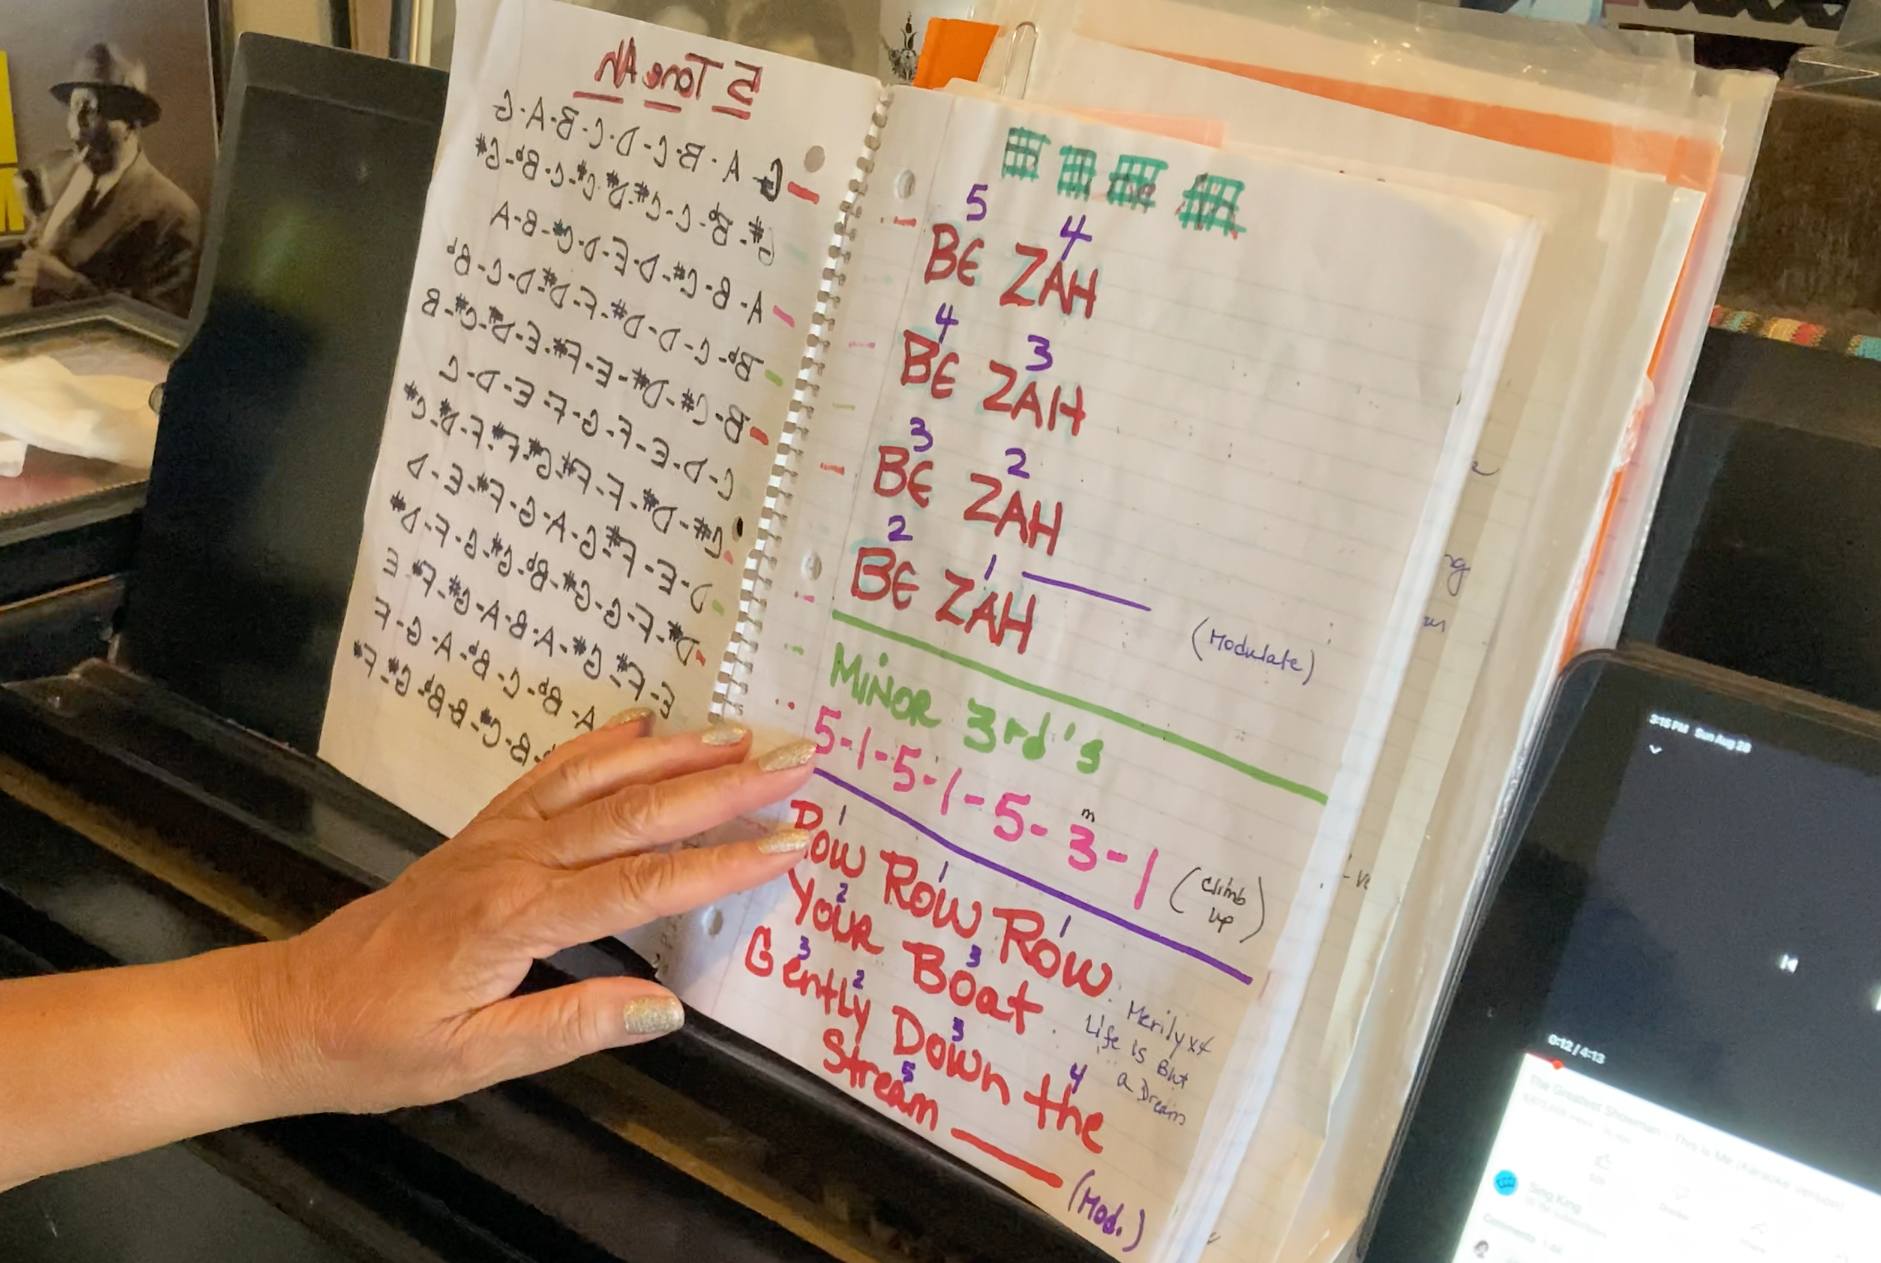 5 Tone Ah
G-A-B-C-D-C-B-A-G
G#-Bb-C-C#-D#-C#-C-Bb-G#
A-B-C#-D-E-D-C#-B-A
Bb-C-D-D#-F-D#-D-C-Bb
B-C#-D#-E-F#-E-D#-C#-B
C-D-E-F-G-F-E-D-C
C#-D#-F-F#-G#-F#-F-D#-C#
D-E-F#-G-A-G-F#-E-D
D#-F-G-G#-Bb-G#-G-F-D#
E-F#-G#-A-B-A-G#-F#-E
A-Bb-C-Bb-A-G-F
B-C#-B-Bb-G#-F#
5 4
BE ZAH
4 3
BE ZAH
3 2
BE ZAH
2 1
BE ZAH
(Modulate)
MINOR 3rd's
m
5-1-5-1-5-3-1
(climb
up)
1 1 1
Row Row Row
2 3
Your Boat
3 2 3 4
Gently Down the
5
Stream
(Mod.)
Merily x4
Life is But
a Dream
3:15 PM Sun Aug 28
0:12 / 4:13
The Greatest Showman - This Is Me (Karaoke Version)
Sing King
Comments